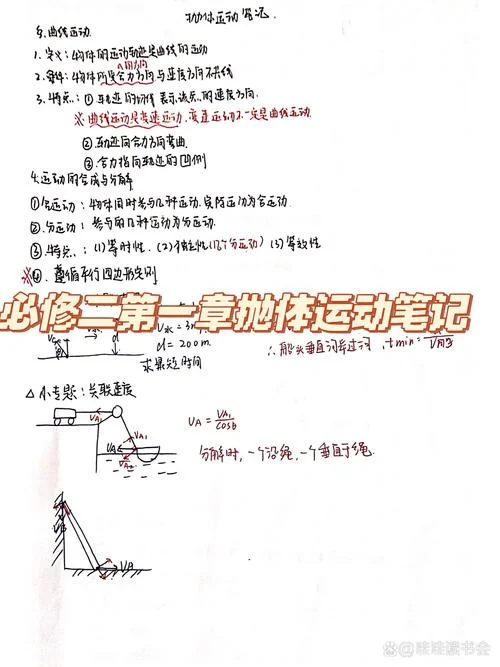 抛体运动笔记
一. 曲线运动.
1. 定义: 物体的运动轨迹是曲线的运动
2. 条件: 物体所受合力方向与速度方向不共线
3. 特点: ① 轨迹的切线表示该点的速度方向.
※ 曲线运动是变速运动. 变速运动不一定是曲线运动.
② 轨迹向合力方向弯曲.
③ 合力指向轨迹的凹侧
4. 运动的合成与分解
① 合运动: 物体同时参与几种运动. 实际运动为合运动.
② 分运动: 参与的几种运动为分运动.
③. 特点: (1) 等时性. (2) 独立性(几个分运动) (3) 等效性
※ ④. 遵循平行四边形定则
必修二第一章抛体运动笔记
d = 200m.
求最短时间
∴ 船头垂直河岸过河, tmin =
△ 小专题: 关联速度
VA1
VA
VA2
VA = VA1/cosθ
分解时, 一个沿绳, 一个垂直于绳.
VB
VA
百家号@哇哇读书会